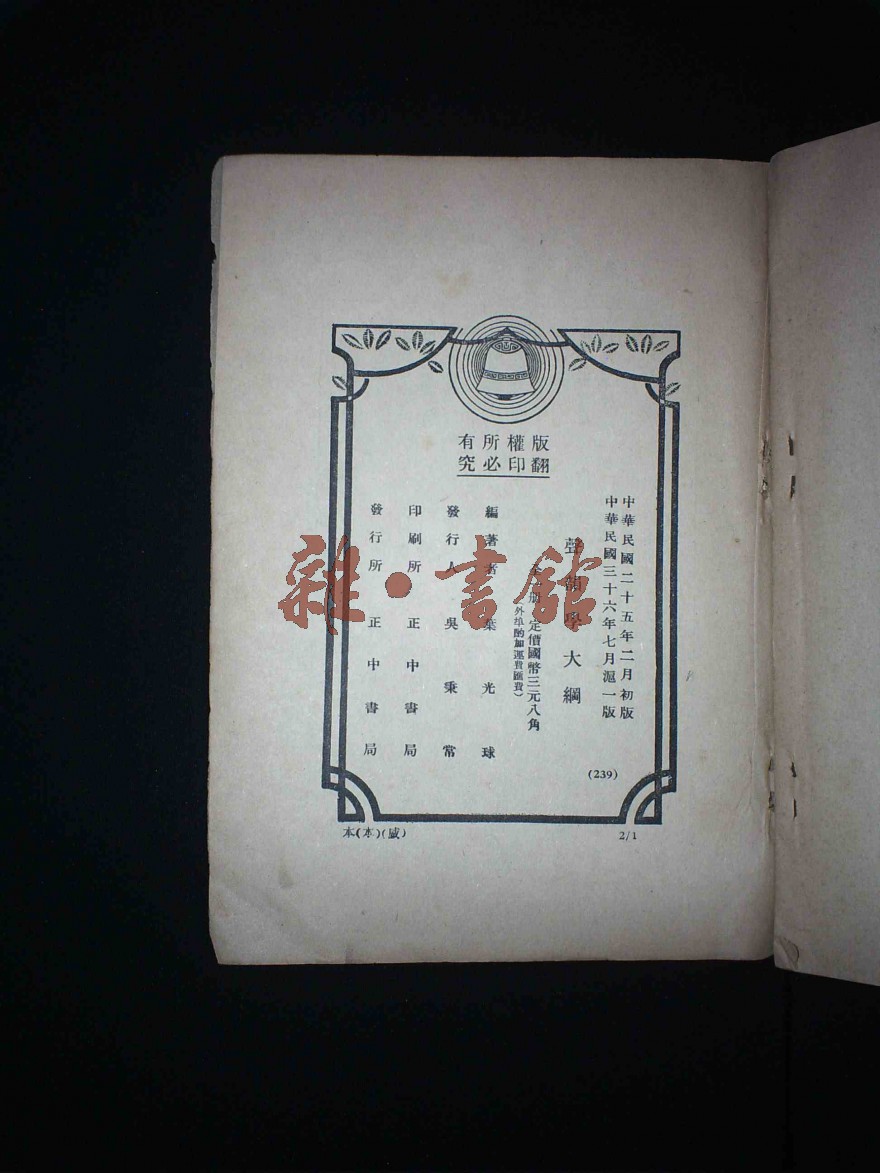 版權所有
翻印必究
中華民國二十五年二月初版
中華民國三十六年七月滬一版
聲韻學大綱
全一冊 定價國幣三元八角
(外埠酌加運費匯費)
編著者 葉光球
發行人 吳秉常
印刷所 正中書局
發行所 正中書局
(239)
本(本)(盛)
2/1
雜·書館